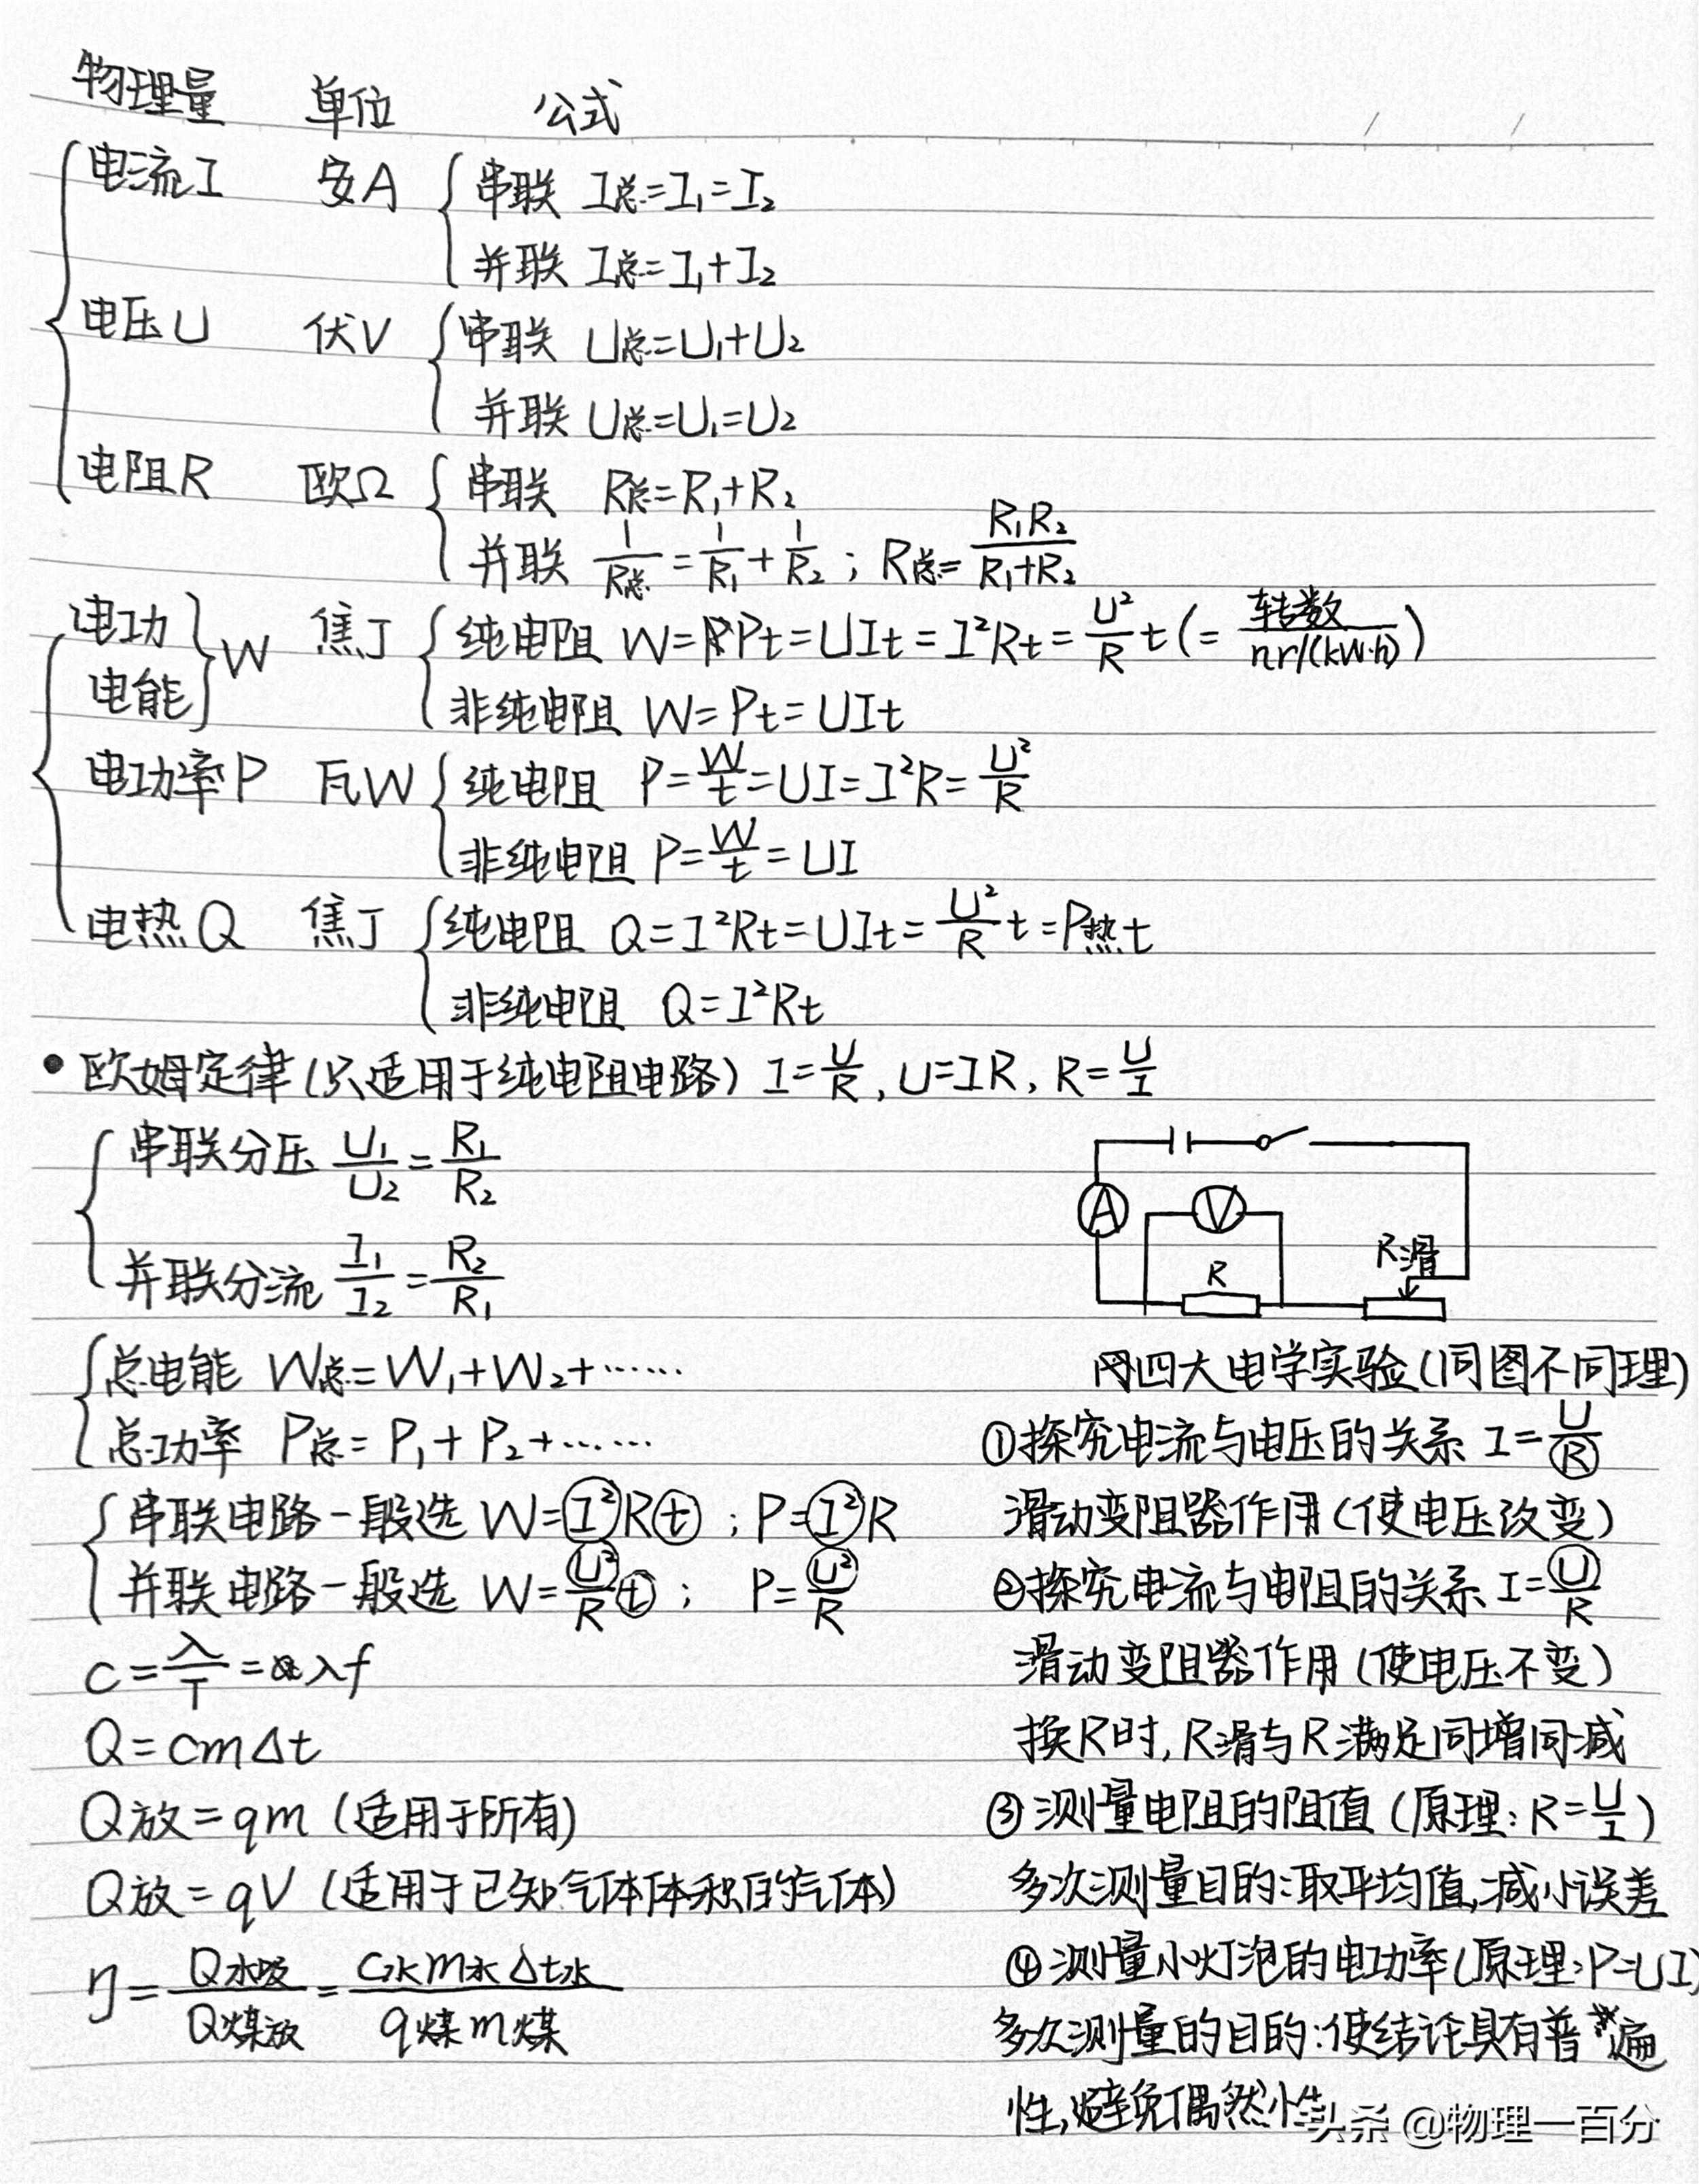 物理量 单位 公式
电流I 安A 串联 I总=I₁=I₂
并联 I总=I₁+I₂
电压U 伏V 串联 U总=U₁+U₂
并联 U总=U₁=U₂
电阻R 欧Ω 串联 R总=R₁+R₂
并联 1/R总=1/R₁+1/R₂；R总=R₁R₂/(R₁+R₂)
电功 电能 W 焦J 纯电阻 W=Pt=UIt=I²Rt=U²/R t(=转数/nr/(kW·h))
非纯电阻 W=Pt=UIt
电功率P 瓦W 纯电阻 P=W/t=UI=I²R=U²/R
非纯电阻 P=W/t=UI
电热Q 焦J 纯电阻 Q=I²Rt=UIt=U²/R t=P热t
非纯电阻 Q=I²Rt
•欧姆定律(只适用于纯电阻电路) I=U/R,U=IR,R=U/I
串联分压 U₁/U₂=R₁/R₂
并联分流 I₁/I₂=R₂/R₁
总电能 W总=W₁+W₂+……
总功率 P总=P₁+P₂+……
串联电路一般选 W=I²Rt；P=I²R
并联电路一般选 W=U²/R t；P=U²/R
c=λ/T=λf
Q=cmΔt
Q放=qm(适用于所有)
Q放=qV(适用于已知气体体积的气体)
η=Q水吸/Q煤放=C水m水Δt水/q煤m煤
A
V
R
R滑
四大电学实验(同图不同理)
①探究电流与电压的关系 I=U/R
滑动变阻器作用(使电压改变)
②探究电流与电阻的关系 I=U/R
滑动变阻器作用(使电压不变)
换R时,R滑与R满足同增同减
③测量电阻的阻值(原理:R=U/I)
多次测量目的:取平均值,减小误差
④测量小灯泡的电功率(原理:P=UI)
多次测量的目的:使结论具有普遍
性,避免偶然性
头条 @物理一百分